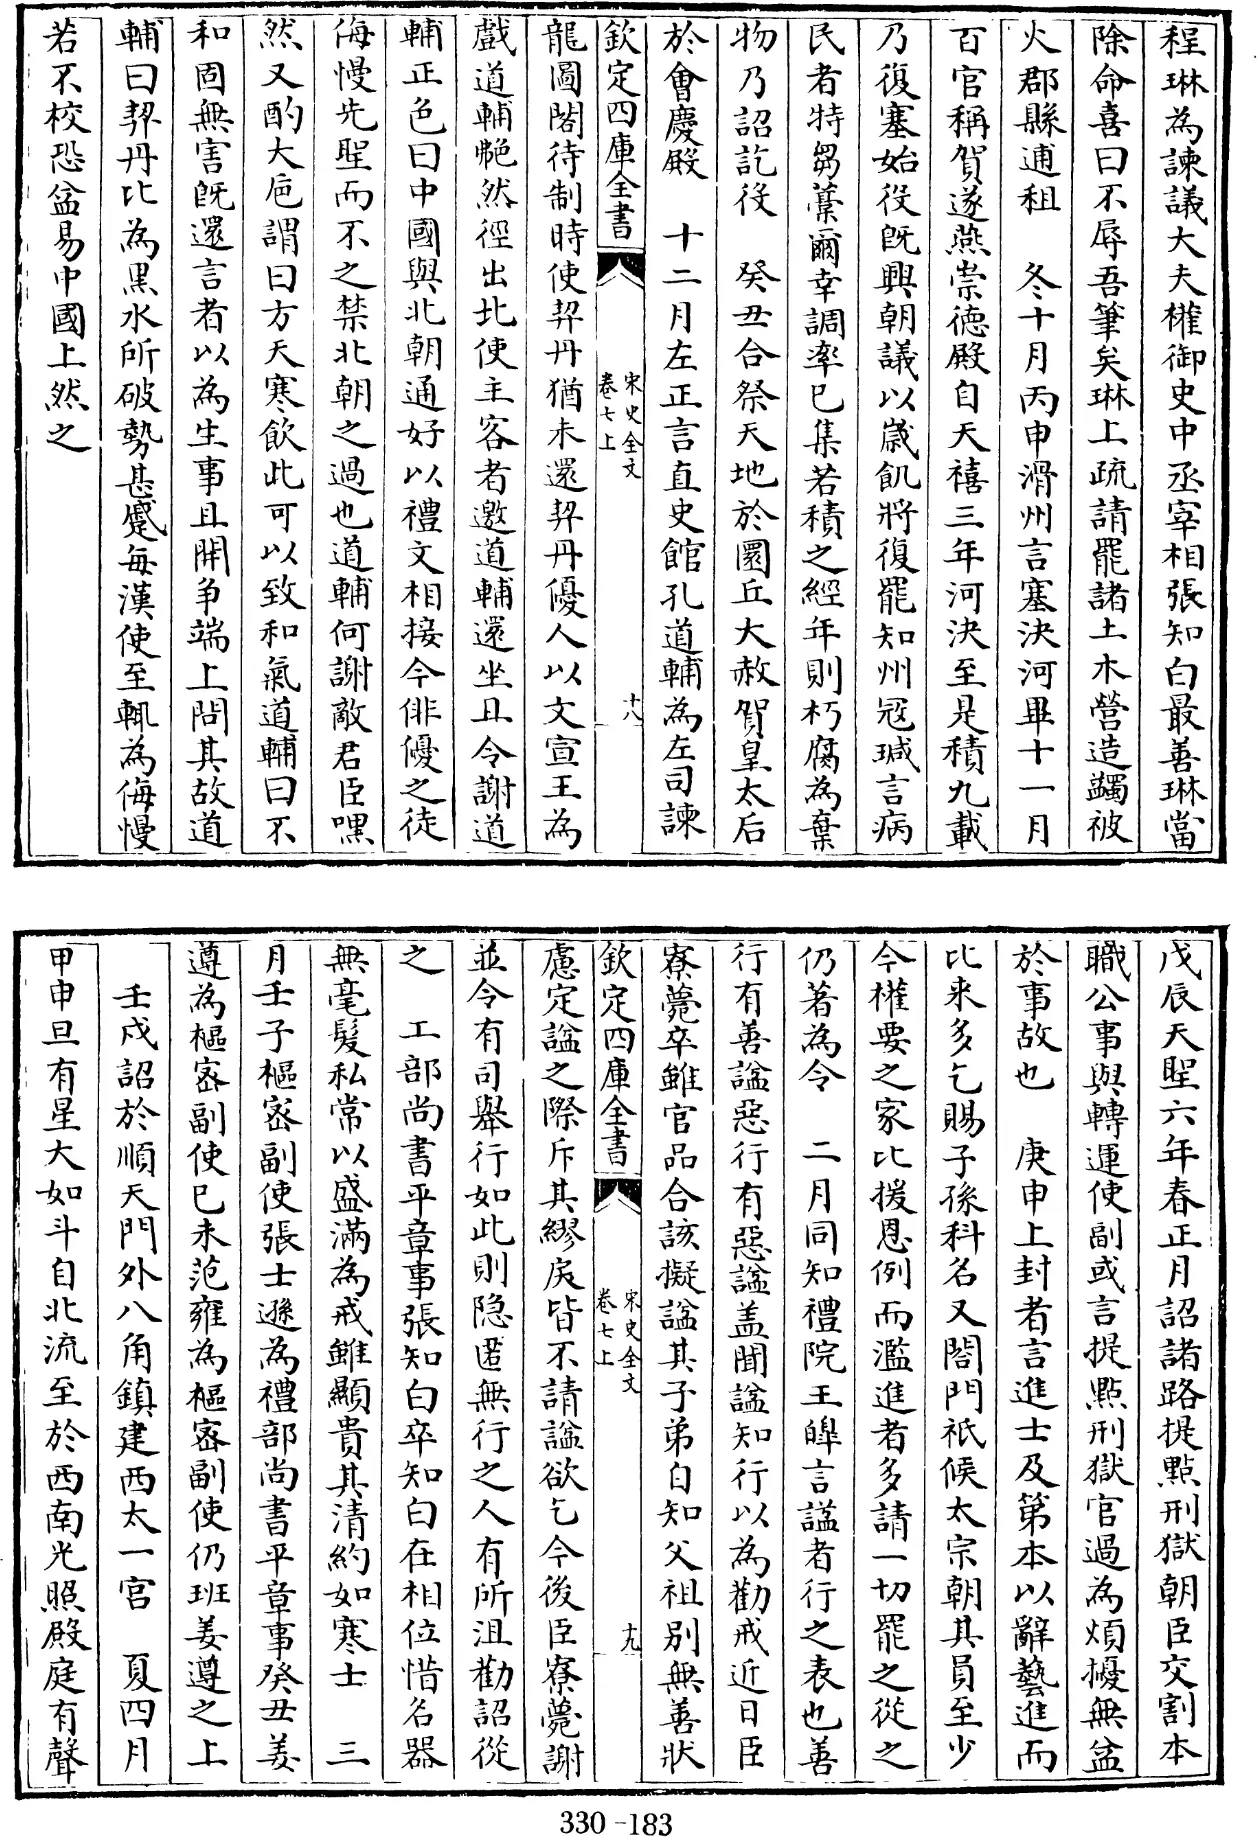 程琳為諫議大夫權御史中丞宰相張知白最善琳當
除命喜曰不辱吾筆矣琳上疏請罷諸土木營造蠲被
火郡縣逋租　冬十月丙申滑州言塞決河畢十一月
百官稱賀遂燕崇德殿自天禧三年河決至是積九載
乃復塞始役既興朝議以歲飢將復罷知州冦瑊言病
民者特芻藁爾幸調率已集若積之經年則朽腐為棄
物乃詔訖役　癸丑合祭天地於圜丘大赦賀皇太后
於會慶殿　十二月左正言直史館孔道輔為左司諫
欽定四庫全書　宋史全文卷七上　十八
龍圖閣待制時使契丹猶未還契丹優人以文宣王為
戲道輔艴然徑出北使主客者邀道輔還坐且令謝道
輔正色曰中國與北朝通好以禮文相接今俳優之徒
侮慢先聖而不之禁北朝之過也道輔何謝敵君臣嘿
然又酌大巵謂曰方天寒飲此可以致和氣道輔曰不
和固無害既還言者以為生事且開爭端上問其故道
輔曰契丹比為黑水所破勢甚蹙每漢使至輒為侮慢
若不校恐益易中國上然之
戊辰天聖六年春正月詔諸路提點刑獄朝臣交割本
職公事與轉運使副或言提點刑獄官過為煩擾無益
於事故也　庚申上封者言進士及第本以辭藝進而
比来多乞賜子孫科名又閤門祗候太宗朝其員至少
今權要之家比援恩例而濫進者多請一切罷之從之
仍著為令　二月同知禮院王皥言謚者行之表也善
行有善謚惡行有惡謚盖聞謚知行以為勸戒近日臣
寮薨卒雖官品合該擬謚其子弟自知父祖別無善狀
欽定四庫全書　宋史全文卷七上　十九
慮定謚之際斥其繆戾皆不請謚欲乞今後臣寮薨謝
並令有司舉行如此則隐匿無行之人有所沮勸詔從
之　工部尚書平章事張知白卒知白在相位惜名器
無毫髮私常以盛滿為戒雖顯貴其清約如寒士　三
月壬子樞宻副使張士遜為禮部尚書平章事癸丑姜
遵為樞宻副使已未范雍為樞宻副使仍班姜遵之上
壬戍詔於順天門外八角鎮建西太一宮　夏四月
甲申旦有星大如斗自北流至於西南光照殿庭有聲
330-183